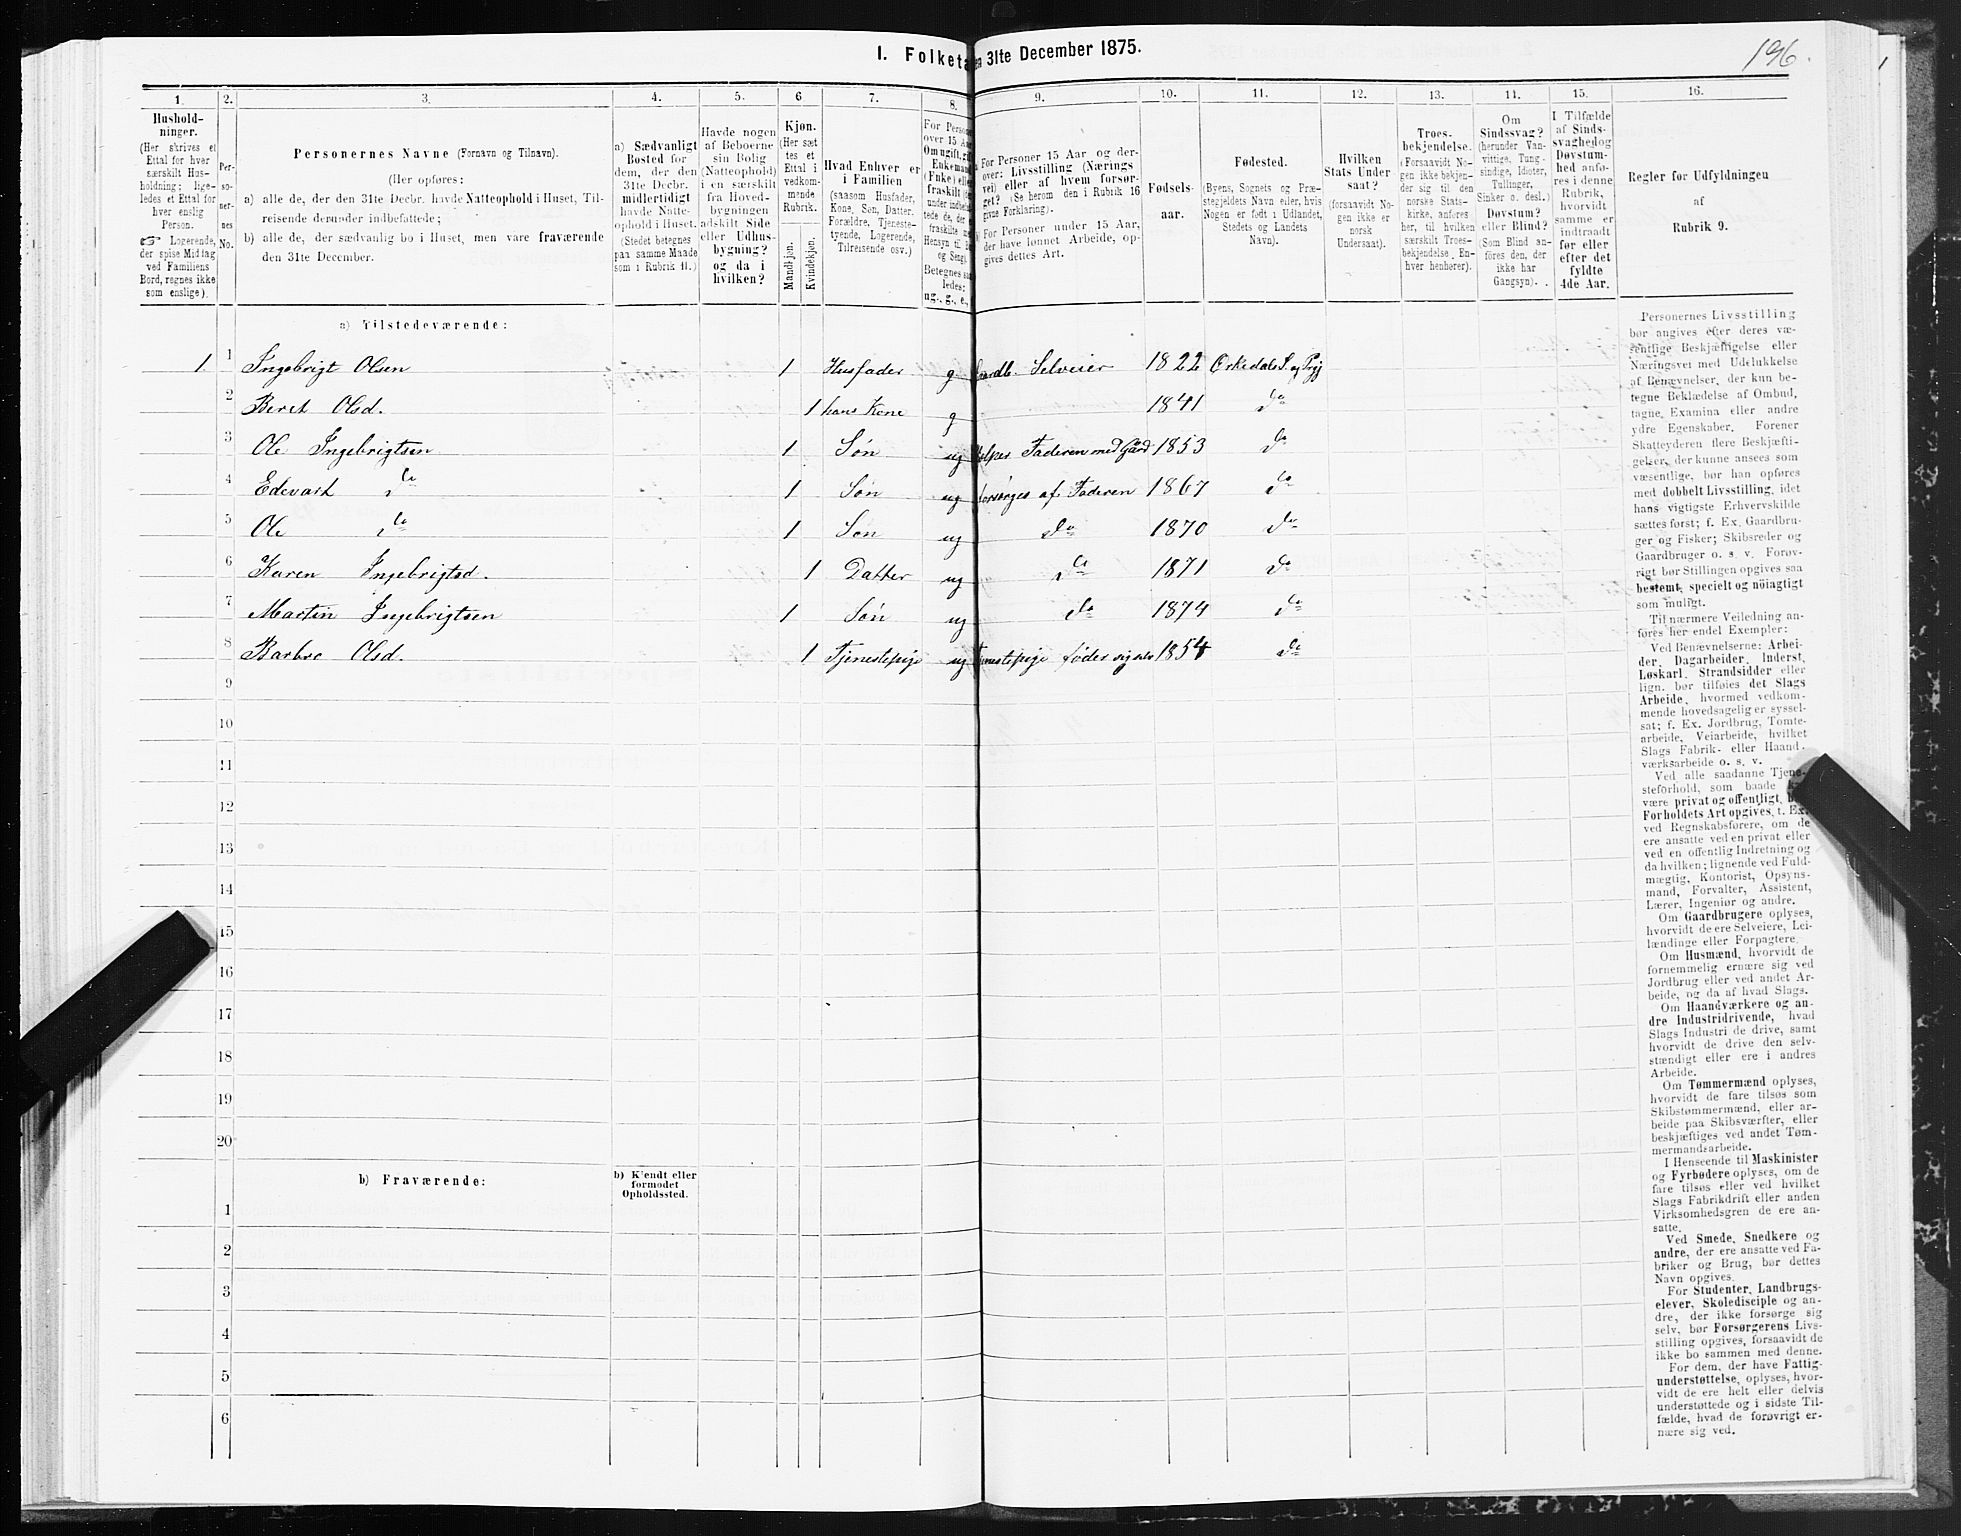 I. Folketa en 31te December 1875.
196.
1.
Hushold-
ninger.
(Her skrives et
Ettal for hver
særskilt Hus-
holdning; lige-
ledes et Ettal for
hver enslig
Person.
☞ Logerende,
der spise Middag
ved Familiens
Bord, regnes ikke
som enslige).
2.
Per-
so-
ner-
nes
No.
3.
Personernes Navne (Fornavn og Tilnavn).
(Her opføres:
a) alle de, der den 31te Decbr. havde Natteophold i Huset, Til-
reisende derunder indbefattede;
b) alle de, der sædvanlig bo i Huset, men vare fraværende
den 31te December.
4.
a) Sædvanligt
Bosted for
dem, der den
31te Decbr.
midlertidigt
havde Natte-
ophold i Huset.
(Stedet betegnes
paa samme Maade
som i Rubrik 11.)
5.
Havde nogen
af Beboerne
sin Bolig
(Natteophold)
i en særskilt
fra Hoved-
bygningen
adskilt Side
eller Udhus-
bygning?
og da i
hvilken?
6
Kjøn.
(Her sæt
tes et
Ettal i
vedkom-
mende
Rubrik.
Mandkjøn.
Kvindekjøn.
7.
Hvad Enhver er
i Familien
(saasom Husfader,
Kone, Søn, Datter,
Forældre, Tjeneste-
tyende, Logerende,
Tilreisende osv.)
8.
For Person
over 15 Aa
Om ugift, gif
Enkeman
(Enke) elle
fraskilt
under indbe
tede de, der
fraskilte
Hensyn til
og Seng).
Betegnes sa
ledes:
ug., g., e.,
9.
For Personer 15 Aar og der-
over: Livsstilling (Nærings
vei) eller af hvem forsør-
get? (Se herom den i Rubrik 16
givne Forklaring).
For Personer under 15 Aar,
der have lønnet Arbeide, op-
gives dettes Art.
10.
Fødsels-
aar.
11.
Fødested.
(Byens, Sognets og Præ-
stegjeldets Navn eller, hvis
Nogen er født i Udlandet,
Stedets og Landets
Navn).
12.
Hvilken
Stats Under
saat?
(forsaavidt No-
gen ikke er
norsk
Undersaat).
13.
Troes-
bekjendelse.
(Forsaavidt No-
gen ikke bekjen-
der sig til den
norske Stats-
kirke, anføres
her, til hvilken
særskilt Troes-
bekjendelse En-
hver henhører).
14.
Om
Sindssvag?
(herunder Van-
vittige, Tung-
sindige, Idioter,
Tullinger,
Sinker o. desl.)
Døvstum?
eller Blind?
(Som Blind an-
føres den, der
ikke har
Gangsyn).
15.
I Tilfælde
af Sinds-
svaghed og
Døvstum-
hed anfø-
res i denne
Rubrik,
hvorvidt
samme er
indtraadt
før eller
efter det
fyldte
4de Aar.
16.
Regler før Udfyldningen
af
Rubrik 9.
a) Tilstedeværende:
1 1 Ingebrigt Olsen 1 Husfader g Selveier 1822 Orkedals S. og Prgj
2 Beret Olsd. 1 hans Kone g 1841 do
3 Ole Ingebrigtsen 1 Søn ug Faderen med Gård 1853 do
4 Edevart do 1 Søn ug forsørges af Faderen 1867 do
5 Ole do 1 Søn ug do 1870 do
6 Karen Ingebrigtsd. 1 Datter ug do 1871 do
7 Martin Ingebrigtsen 1 Søn ug do 1874 do
8 Barbro Olsd. 1 Tjenestepige ug 1854 do
9
10
11
12
13
14
15
16
17
18
19
20
b) Fraværende:
b) Kjendt eller
formodet
Opholdssted.
1
2
3
4
5
6
Personernes Livsstilling
bør angives efter deres væ-
sentlige Beskjæftigelse eller
Næringsvei med Udelukkelse
af Benævnelser, der kun be-
tegne Beklædelse af Ombud,
tagne Examina eller andre
ydre Egenskaber. Forener
Skatteyderen flere Beskjæfti-
gelser, der kunne ansees som
væsentlige, bør han opføres
med dobbelt Livsstilling, idet
hans vigtigste Erhvervskilde
sættes først; f. Ex. Gaardbru-
ger og Fisker; Skibsreder og
Gaardbruger o. s. v. Forøv-
rigt bør Stillingen opgives saa
bestemt, specielt og nøiagtigt
som muligt.
Til nærmere Veiledning an-
føres her endel Exempler:
Ved Benævnelserne: Arbei-
der, Dagarbeider, Inderst,
Løskarl, Strandsidder eller
lign. bør tilføies det Slags
Arbeide, hvormed vedkom-
mende hovedsagelig er syssel-
sat; f. Ex. Jordbrug, Tomte-
arbeide, Veiarbeide, hvilket
Slags Fabrik- eller Haand-
værksarbeide o. s. v.
Ved alle saadanne Tjene-
steforhold, som baade
være privat og offentligt,
Forholdets Art opgives, t. Ex.
ved Regnskabsførere, om de
ere ansatte ved en privat eller
ved en offentlig Indretning og
da hvilken; lignende ved Fuld-
mægtig, Kontorist, Opsyns-
mand, Forvalter, Assistent,
Lærer, Ingeniør og andre.
Om Gaardbrugere oplyses,
hvorvidt de ere Selveiere, Lei-
lændinge eller Forpagtere.
Om Husmænd, hvorvidt de
fornemmelig ernære sig ved
Jordbrug eller ved andet Ar-
beide, og da af hvad Slags.
Om Haandværkere og an-
dre Industridrivende, hvad
Slags Industri de drive, samt
hvorvidt de drive den selv-
stændigt eller ere i andres
Arbeide.
Om Tømmermænd oplyses,
hvorvidt de fare tilsøs som
Skibstømmermænd, eller ar-
beide paa Skibsværfter, eller
beskjæftiges ved andet Tøm-
mermandsarbeide.
I Henseende til Maskinister
og Fyrbødere oplyses, om de
fare tilsøs eller ved hvilket
Slags Fabrikdrift eller anden
Virksomhedsgren de ere an-
satte.
Ved Smede, Snedkere og
andre, der ere ansatte ved Fa-
briker og Brug, bør dettes
Navn opgives.
For Studenter, Landbrugs-
elever, Skoledisciple og an-
dre, der ikke forsørge sig
selv, bør Forsørgerens Livs-
stilling opgives, forsaavidt de
ikke bo sammen med denne.
For dem, der have Fattig-
understøttelse, oplyses, hvor-
vidt de ere helt eller delvis
understøttede og i sidste Til-
fælde, hvad de forøvrigt er-
nære sig ved.